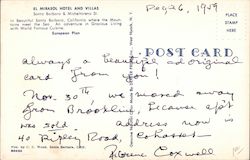 EL MIRASOL HOTEL AND VILLAS
Santa Barbara & Micheltorena St.
In Beautiful Santa Barbara, California where the Moun-
tains meet the Sea. An adventure in Gracious Living
with World Famous Cuisine
European Plan
1959
PLACE
STAMP
HERE
POST CARD
always a beautiful & original
card from you!
Nov. 30th we moved away
from Brookline because apt
was sold. address now is
40 Ripley Road, Cohasset
Florence Coxwell